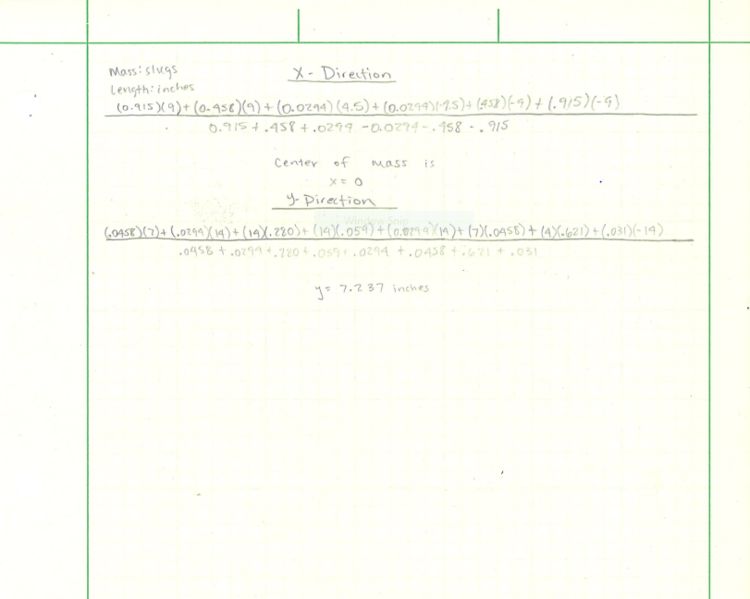 Mass: slugs
Length: inches
X-Direction
(0.915)(9)+(0.458)(9)+(0.0294)(4.5)+(0.0294)(-4.5)+(.458)(-9)+(.915)(-9)
0.915+.458+.0294-0.0294-.458-.915
Center of mass is
x=0
y-Direction
(.0458)(7)+(.0294)(14)+(14)(.280)+(14)(.059)+(0.0294)(14)+(7)(.0458)+(4)(.621)+(.031)(-14)
.0458+.0294+.280+.059+.0294+.0458+.621+.031
y=7.237 inches